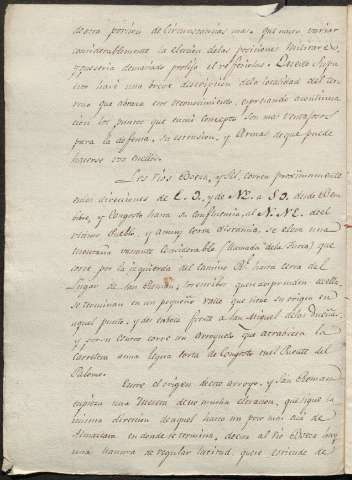 de otra porcion de circunstancias mas, que hacen variar
considerablemente la eleccion de las posiciones Militares,
y que seria demasiado prolijo el referirlas. Desde
hare una breve descripcion de la localidad del ter
reno que abraza este reconocimiento, expresando a continua
cion los puntos que en mi concepto son mas ventajosos
para la defensa, su extension, y Armas de que puede
hacerse uso en ellos.
Los rios Boeza, y Sil, corren proximamente
en las direcciones de E. O. y de NE. a SO. desde Bem
bibre, y Congosto hasta su confluencia, al N. NE. de el
ultimo Pueblo, y a muy corta distancia, se eleva una
montaña bastante considerable (llamada de la ) que
corre por la izquierda del camino Rl. hasta cerca del
Lugar de San Roman, los estribos que se desprenden de ella
se terminan en un pequeño valle que tiene su origen en
aquel punto, y desemboca frente a San Miguel de las Dueñas,
y por su centro corre un Arroyuelo que atraviesa la
carretera a una legua corta de Congosto en el Puente del
Palomo.
Entre el origen de este arroyo, y San Roman
empieza una de mucha elevacion, que sigue la
misma direccion de aquel hasta un poco mas alla de
Almazcara en donde se termina, de esta al rio Boeza hay
una llanura de regular latitud, que se estiende de